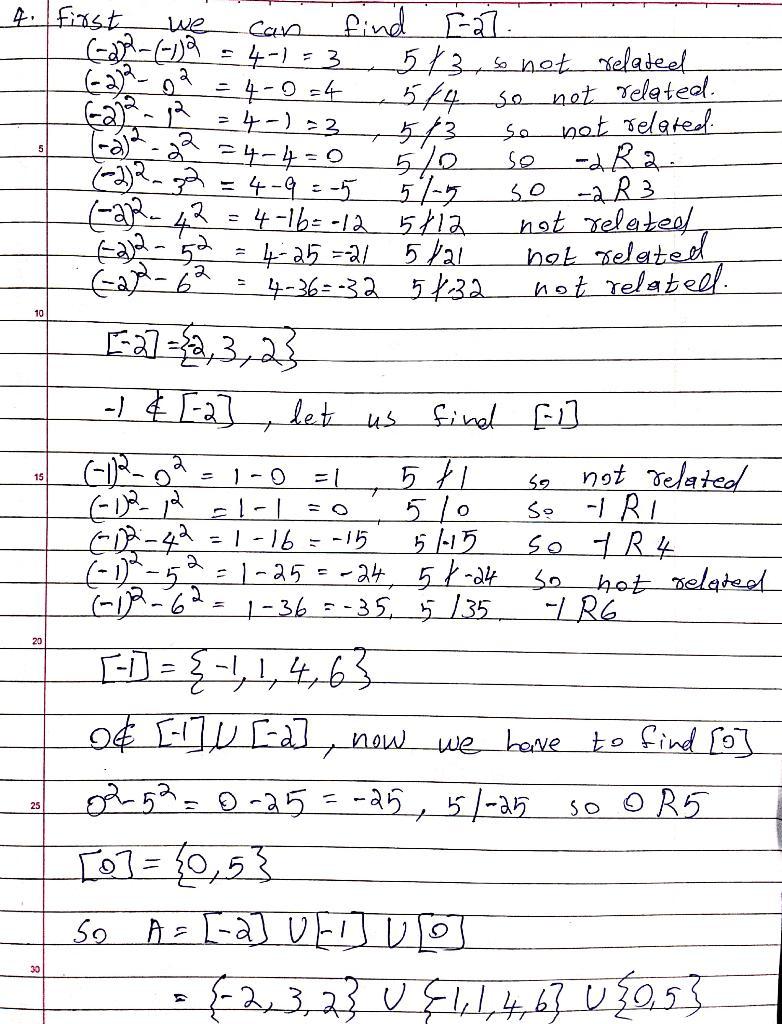 4. First we can find [-2].
(-2)²-(-1)² = 4-1 = 3 , 5∤3, so not related
(-2)²- 0² = 4-0 =4 , 5∤4 so not related.
(-2)²- 1² = 4-1 =3 , 5∤3 so not related.
5 (-2)²- 2² = 4-4 = 0 5/0 so -2 R 2.
(-2)²- 3² = 4-9 = -5 5/-5 so -2 R 3
(-2)²- 4² = 4-16 = -12 5∤12 not related
(-2)²- 5² = 4-25 =-21 5∤21 not related
(-2)²- 6² = 4-36=-32 5∤-32 not related.
10
[-2] ={-2,3,2}
-1 ∉ [-2] , let us find [-1]
15 (-1)²- 0² = 1-0 =1 , 5∤1 so not related
(-1)²- 1² = 1-1 = 0 , 5/0 so -1 R1
(-1)²-4² = 1-16 = -15 5/-15 so -1 R 4
(-1)²-5² = 1-25 = -24, 5∤-24 so not related
(-1)²-6² = 1-36 = -35, 5/35 -1 R6
20
[-1] = {-1,1,4,6}
0∉ [-1] U [-2] , now we have to find [0]
25 0²-5² = 0-25 = -25 , 5/-25 so 0 R5
[0] = {0,5}
so A = [-2] U [-1] U [0]
30
= {-2,3,2} U {-1,1,4,6} U {0,5}